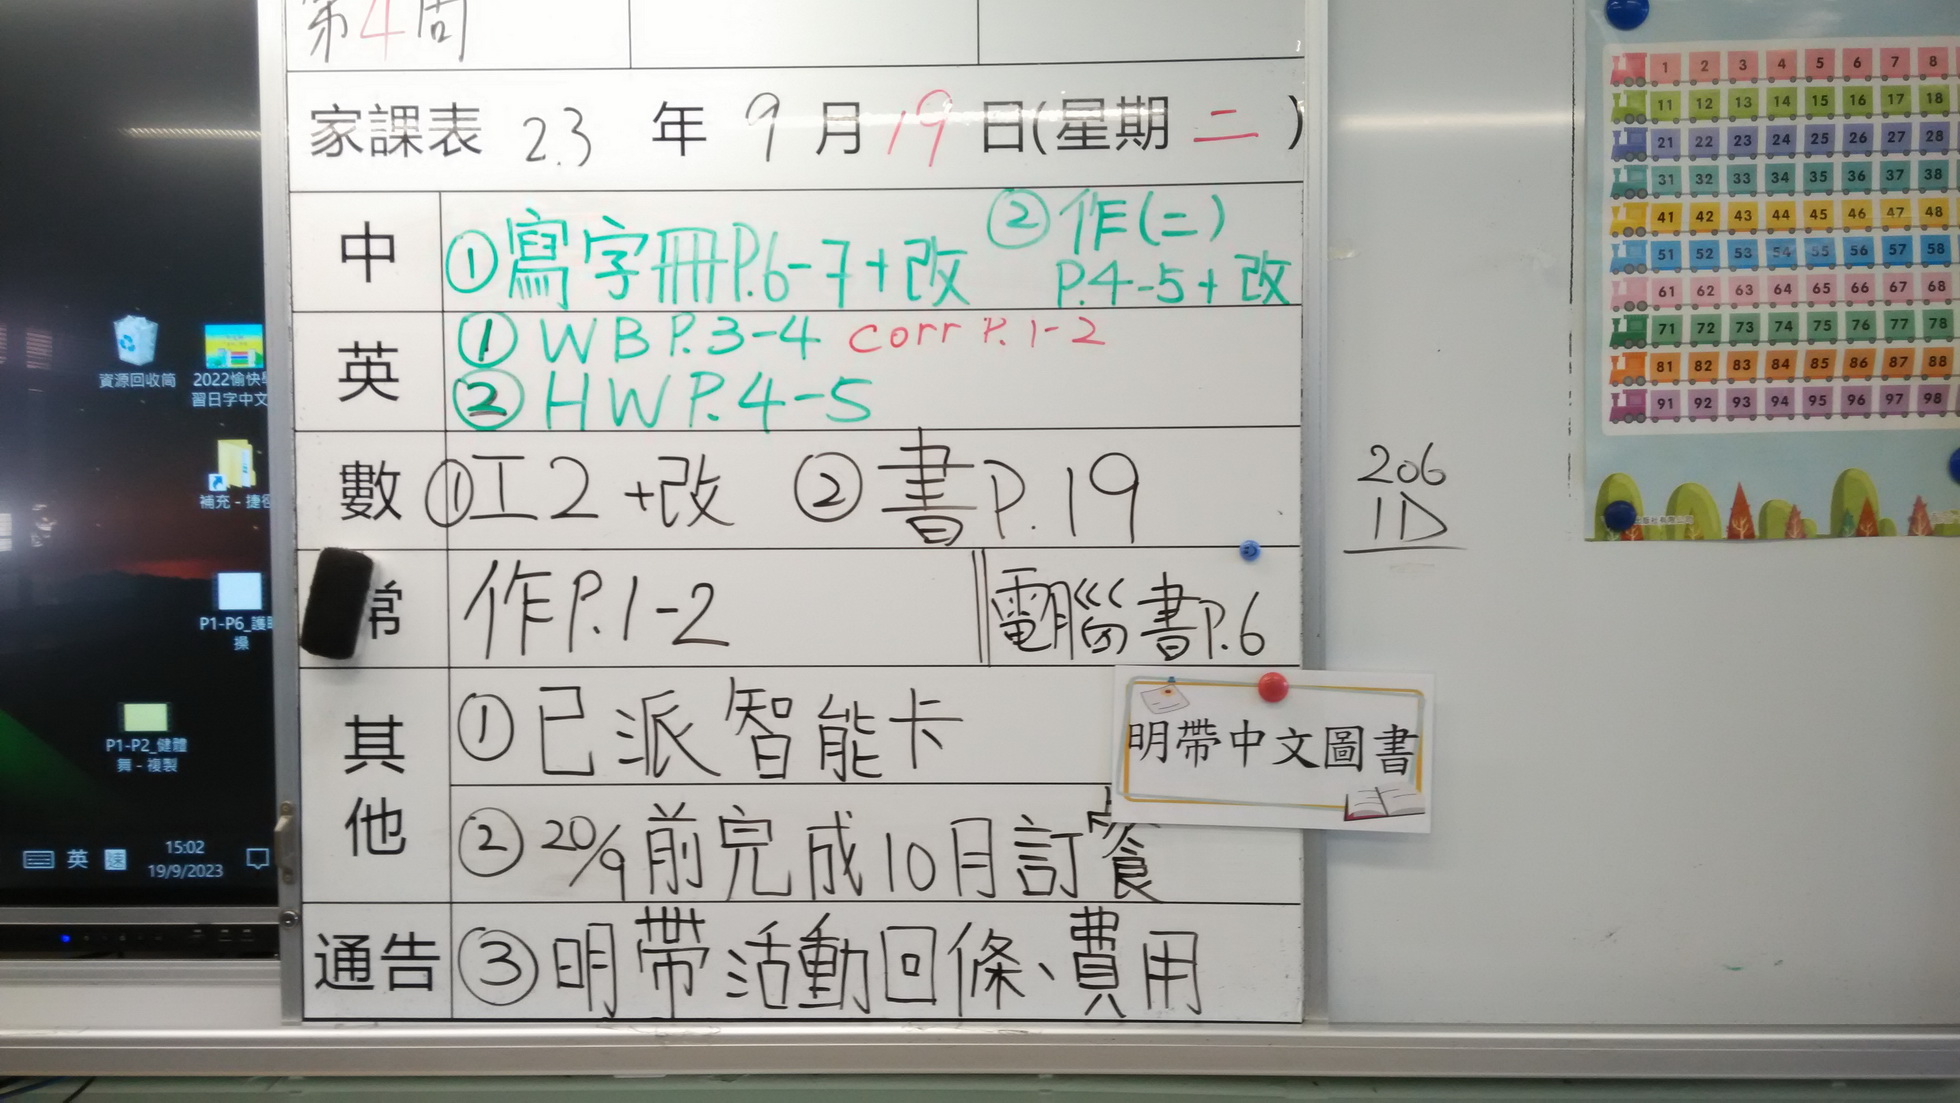 第4周
家課表 23 年 9 月 19 日(星期 二 )
中 ①寫字冊P.6-7+改 ②作(二)
P.4-5+改
英 ① WB P.3-4 corr P.1-2
② HW P.4-5
數 ①工2+改 ②書P.19
常 作P.1-2 電腦書P.6
其他 ①已派智能卡
②20/9前完成10月訂餐
通告 ③明帶活動回條、費用
明帶中文圖書
206
1D
資源回收筒
2022愉快學
習日字中文
補充 - 捷徑
P1-P6_護眼
操
P1-P2_健體
舞 - 複製
英 速 15:02
19/9/2023
1 2 3 4 5 6 7 8
11 12 13 14 15 16 17 18
21 22 23 24 25 26 27 28
31 32 33 34 35 36 37 38
41 42 43 44 45 46 47 48
51 52 53 54 55 56 57 58
61 62 63 64 65 66 67 68
71 72 73 74 75 76 77 78
81 82 83 84 85 86 87 88
91 92 93 94 95 96 97 98